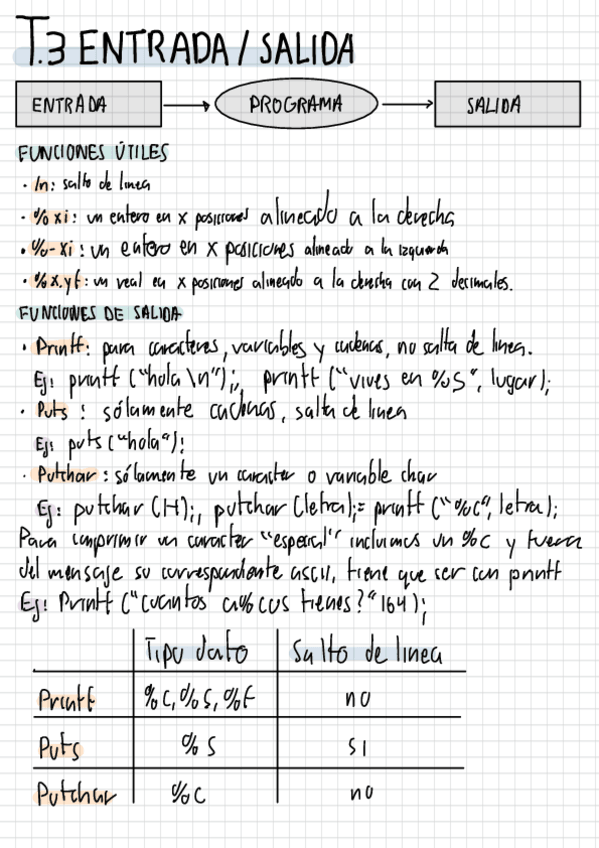 T.3 ENTRADA / SALIDA
ENTRADA PROGRAMA SALIDA
FUNCIONES ÚTILES
· ln: salto de linea
· %xi: un entero en x posiciones alineado a la derecha
· %-xi: un entero en x posiciones alineado a la izquierda
· %x.yf: un real en x posiciones alineado a la derecha con 2 decimales.
FUNCIONES DE SALIDA
· Printf: para caracteres, variables y cadenas, no salta de linea.
Ej: printf ("hola \n");, printf ("vives en %s", lugar);
· Puts: sólamente cadenas, salta de linea
Ej: puts ("hola");
· Putchar: sólamente un caracter o variable char
Ej: putchar (H);, putchar (letra);= printf ("%c", letra);
Para imprimir un caracter "especial" incluimos un %c y fuera
del mensaje su correspondiente ascii, tiene que ser con printf
Ej: Printf ("cuantos a%cos tienes?" 164);
Tipo dato Salto de linea
Printf %c, %s, %f no
Puts %s si
Putchar %c no